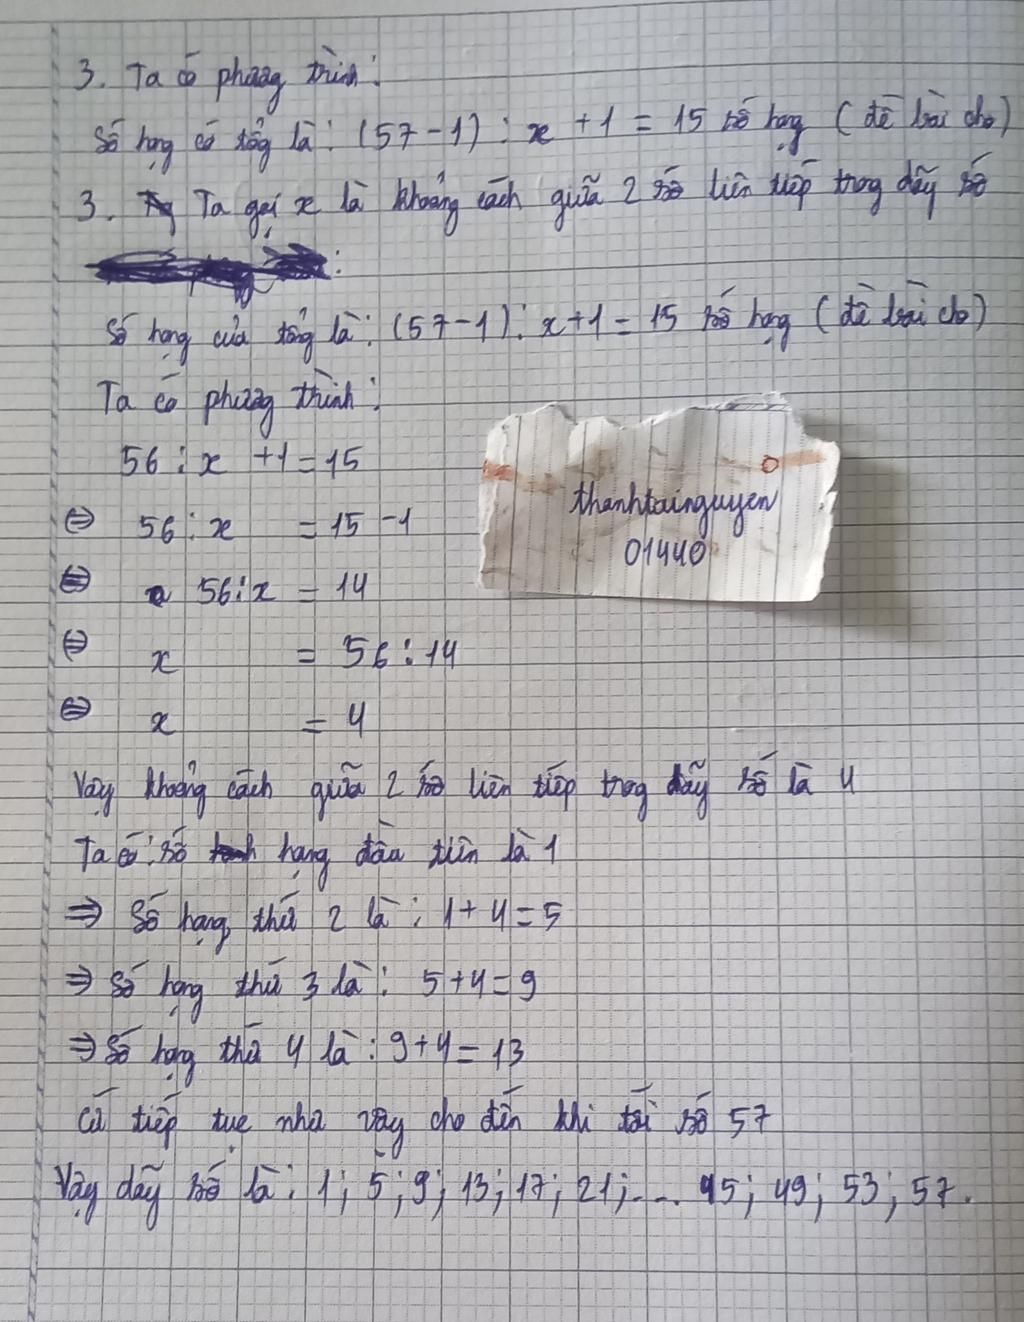 3. Ta có phương trình:
Số hạng có tổng là: (57-1) : x + 1 = 15 số hạng (đề bài cho)
3. Ta gọi x là khoảng cách giữa 2 số liên tiếp trong dãy số
:
Số hạng của tổng là: (57-1) : x+1 = 15 số hạng (đề bài cho)
Ta có phương trình:
56 : x +1 = 15
⇔ 56 : x = 15 -1
⇔ 56 : x = 14
⇔ x = 56 : 14
⇔ x = 4
thanhtainguyen
01440
Vậy khoảng cách giữa 2 số liên tiếp trong dãy số là 4
Ta có: số hạng đầu tiên là 1
⇒ Số hạng thứ 2 là : 1+ 4 = 5
⇒ Số hạng thứ 3 là : 5+4 = 9
⇒ Số hạng thứ 4 là : 9+4 = 13
Cứ tiếp tục như vậy cho đến khi tới số 57
Vậy dãy số là: 1; 5; 9; 13; 17; 21; ... 45; 49; 53; 57.